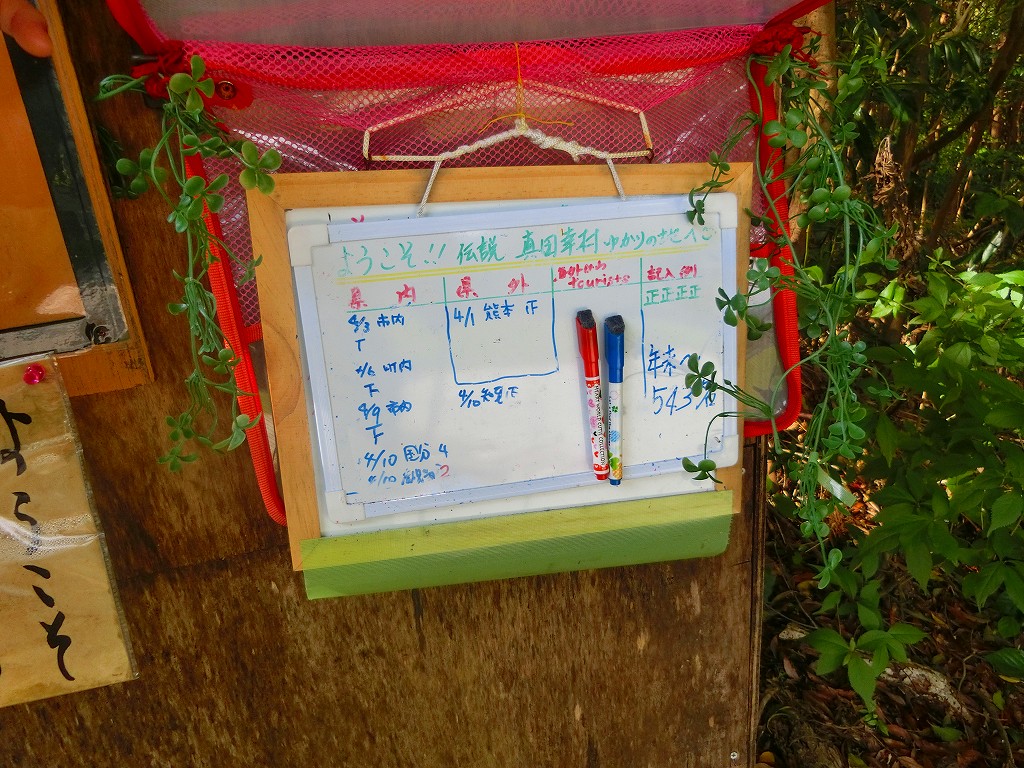 ようこそ!! 伝説 真田幸村 ゆかりの地へ
県内
4/3 市内
T
4/6 町内
下
4/9 市内
下
4/10 国分 4
4/10
2
県外
4/1 熊本 正
4/10 知覧 正
tourists
記入例
正正正正
543名
ようこそ